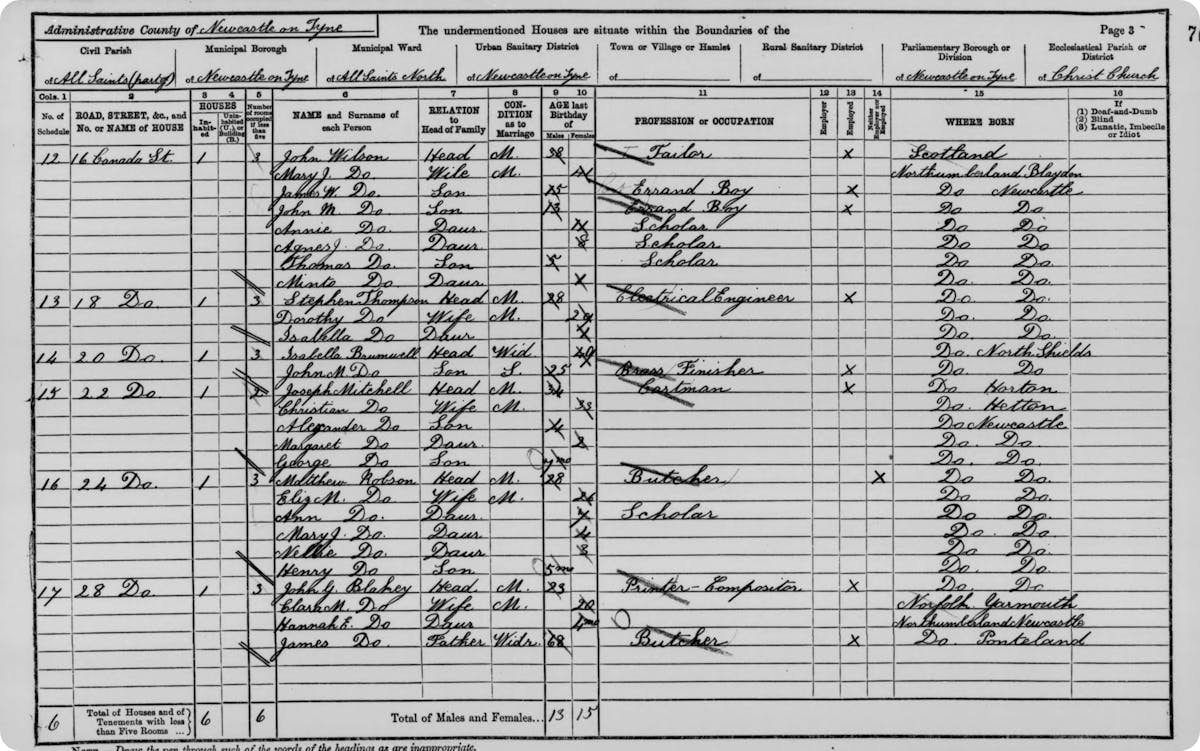 Administrative County of Newcastle on Tyne The undermentioned Houses are situate within the Boundaries of the Page 3
Civil Parish Municipal Borough Municipal Ward Urban Sanitary District Town or Village or Hamlet Rural Sanitary District Parliamentary Borough or Division Ecclesiastical Parish or District
of All Saints (part of) of Newcastle on Tyne of All Saints North of Newcastle on Tyne of of of Newcastle on Tyne of Christ Church
Cols. 1 2 3 4 5 6 7 8 9 10 11 12 13 14 15 16
No. of Schedule ROAD, STREET, &c., and No. or NAME of HOUSE HOUSES In-habit-ed Unin-habited (U.), or Building (B.) Number of rooms occupied if less than five NAME and Surname of each Person RELATION to Head of Family CON-DITION as to Marriage AGE last Birthday of Males Females PROFESSION or OCCUPATION Employer Employed Neither Employer nor Employed WHERE BORN If (1) Deaf-and-Dumb (2) Blind (3) Lunatic, Imbecile or Idiot
12 16 Canada St. 1 3 John Wilson Head M. 38 Tailor X Scotland
Mary J. Do. Wife M. Northumberland Blaydon
James W. Do. Son 15 Errand Boy X Do Newcastle
John M. Do. Son 13 Errand Boy X Do Do
Annie Do. Daur. Scholar Do Do
Agnes J. Do. Daur. 8 Scholar Do Do
Thomas Do. Son 5 Scholar Do Do
Minto Do. Daur. Do. Do.
13 18 Do. 1 3 Stephen Thompson Head M. 28 Electrical Engineer X Do. Do.
Dorothy Do Wife M. Do. Do
Isabella Do Daur. Do. Do.
14 20 Do. 1 3 Isabella Brumwell Head Wid. 49 Do. North Shields
John M. Do Son S. 25 Brass Finisher X Do Do
15 22 Do. 1 Joseph Mitchell Head M. 34 Cartman X Do Horton
Christian Do Wife M. 33 Do. Hetton
Alexander Do Son 4 Do Newcastle
Margaret Do Daur. 2 Do. Do.
George Do Son Do. Do.
16 24 Do. 1 3 Matthew Robson Head M. 28 Butcher X Do Do.
Eliz M. Do Wife M. 26 Do Do.
Ann Do. Daur. 7 Scholar Do Do.
Mary J. Do Daur. 4 Do. Do.
Nellie Do Daur 3 Do Do.
Henry Do Son 5 mo Do. Do.
17 28 Do. 1 3 John G. Blakey Head M. 23 Printer-Compositor X Do. Do
Clara M. Do Wife M. 20 Norfolk Yarmouth
Hannah E. Do Daur 4 mo Northumberland Newcastle
James Do Father Widr. 68 Butcher X Do. Ponteland
6 Total of Houses and of Tenements with less than Five Rooms ... 6 6 Total of Males and Females... 13 15
Draw the pen through such of the words of the headings as are inappropriate.